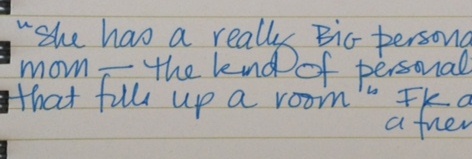 "She has a really Big persona
mom — the kind of personal
that fills up a room" Ik a
a frien